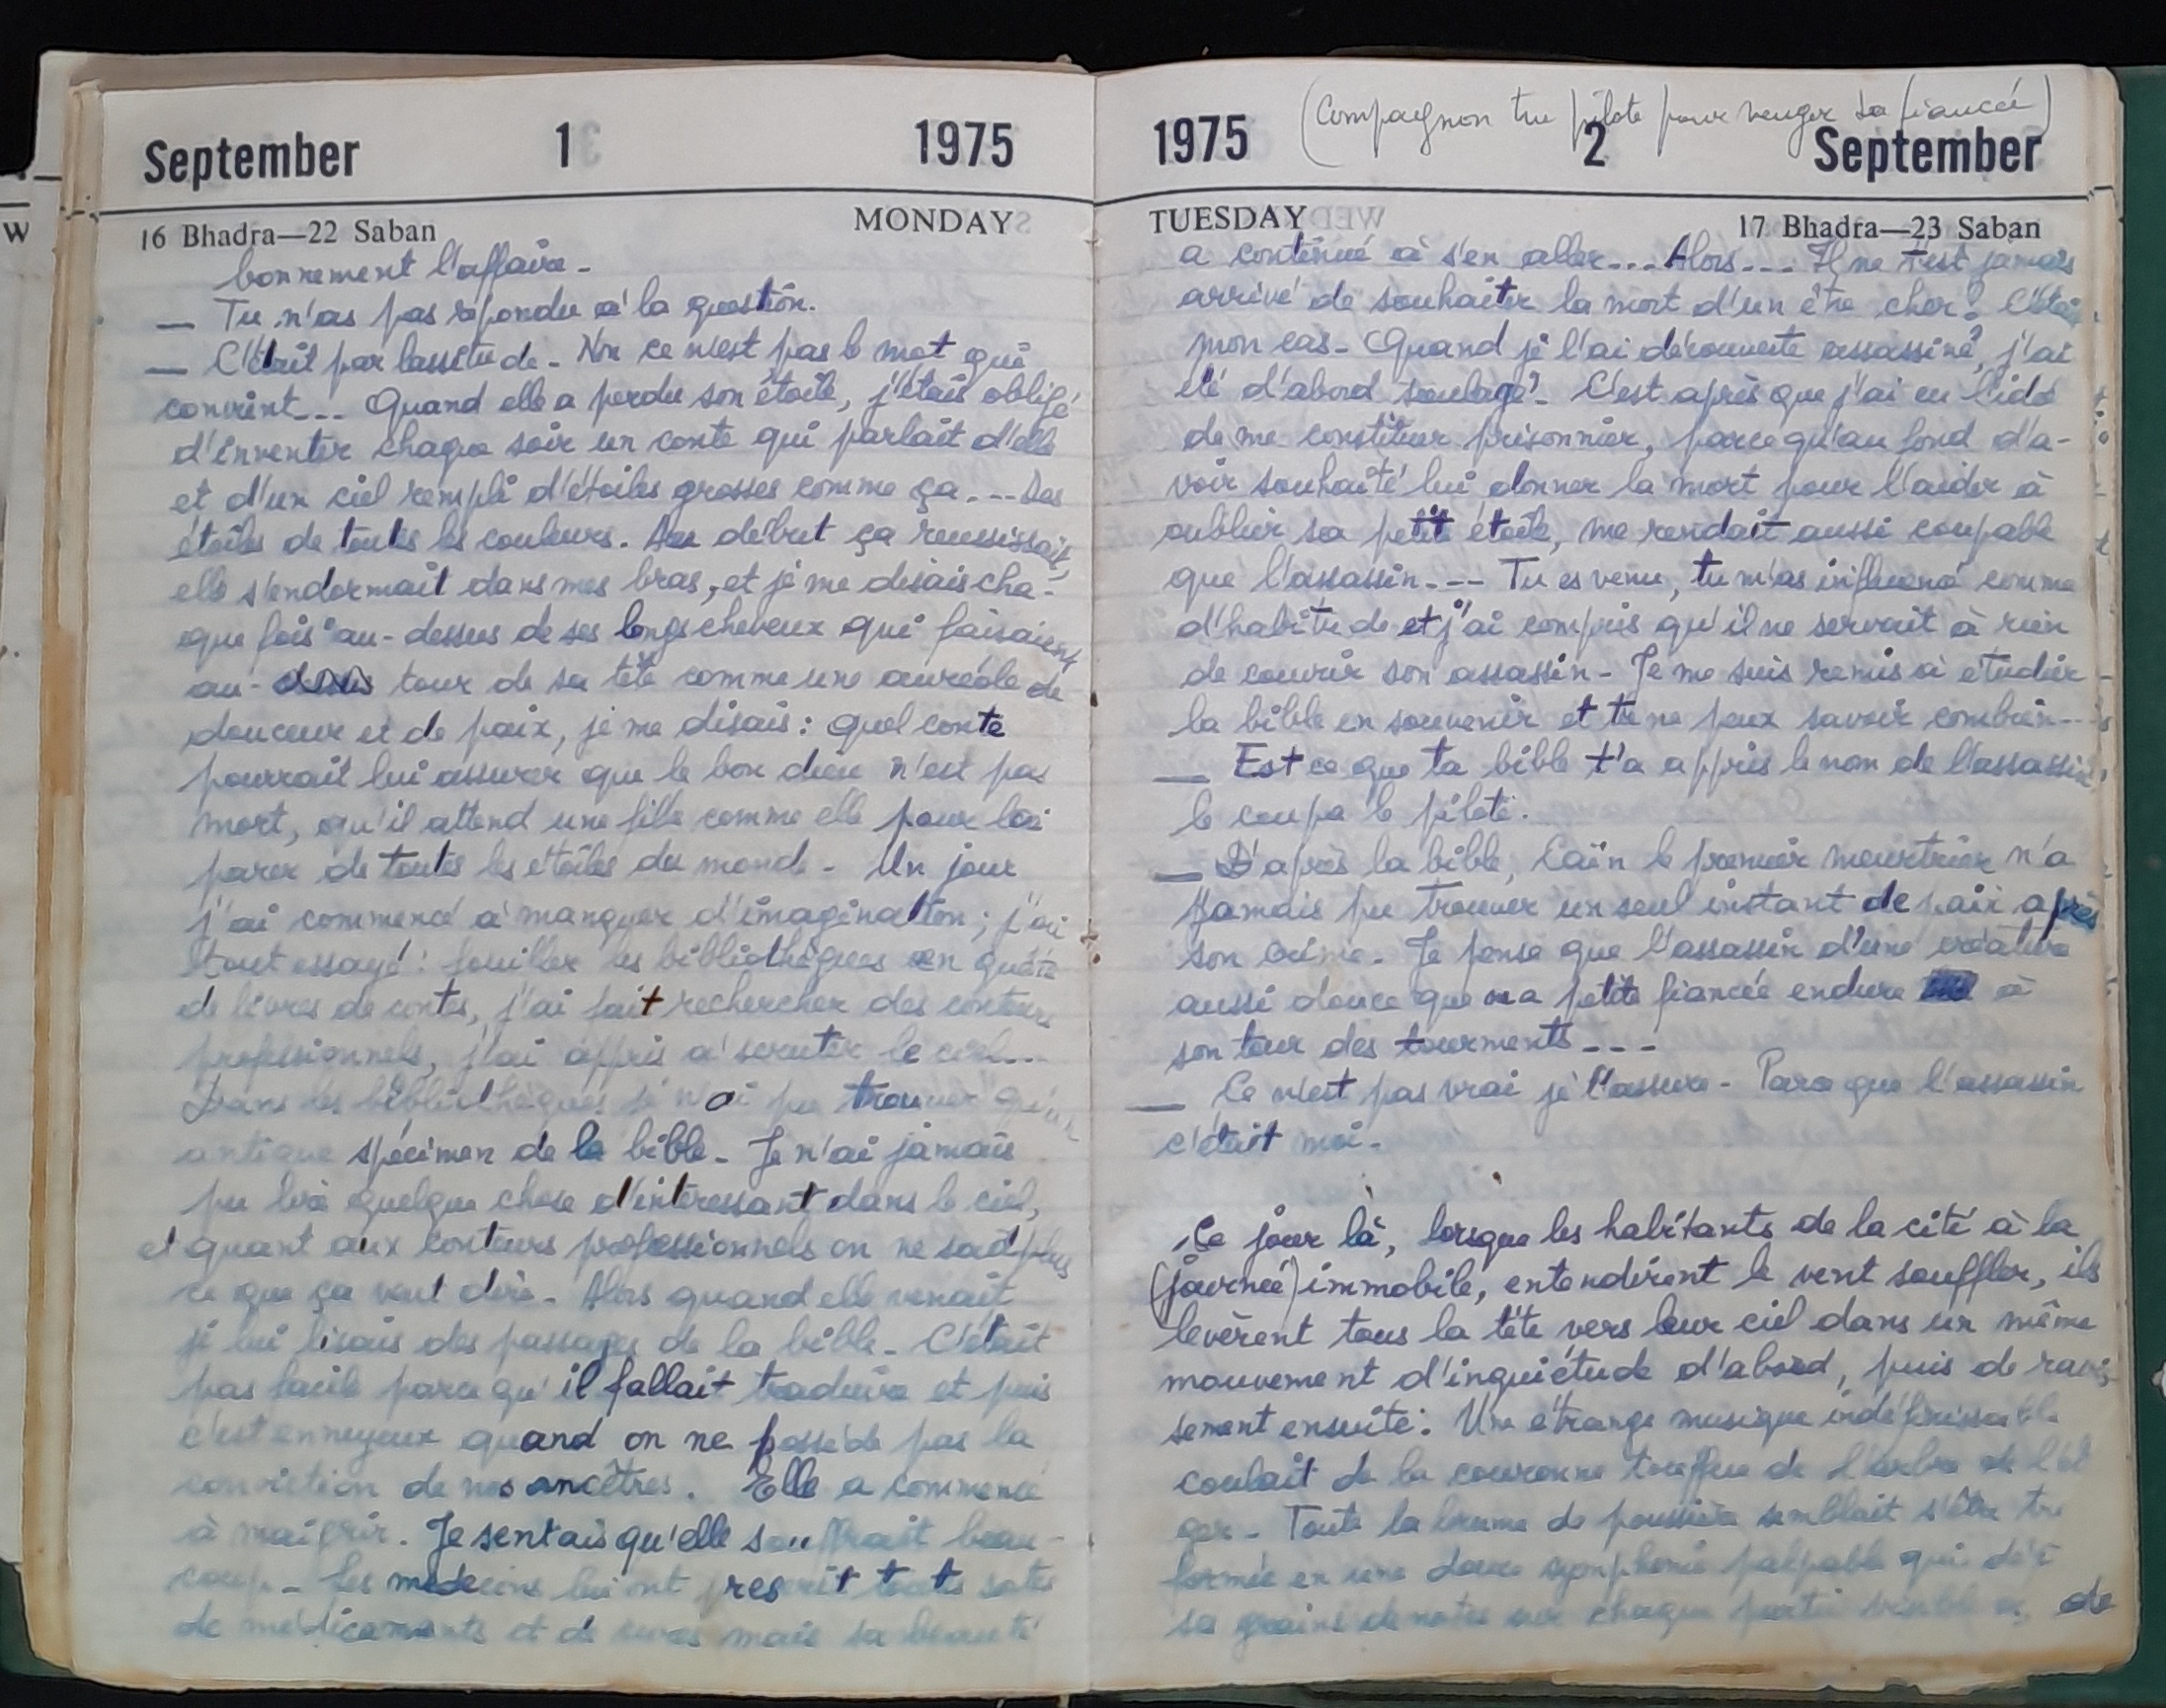 September 1 1975
16 Bhadra—22 Saban MONDAY
bonnement l'affaire -
— Tu n'as pas répondu à la question.
— C'était par lassitude - Non ce n'est pas le mot qui
convient --- Quand elle a perdu son étoile, j'étais obligé
d'inventer chaque soir un conte qui parlait d'elle
et d'un ciel rempli d'étoiles grosses comme ça --- Des
étoiles de toutes les couleurs. Au début ça reussissait,
elle s'endormait dans mes bras, et je me disais cha-
que fois au-dessus de ses longs cheveux qui faisaient
au- tour de sa tête comme une auréole de
douceur et de paix, je me disais : quel conte
pourrait lui assurer que le bon dieu n'est pas
mort, qu'il attend une fille comme elle pour la
parer de toutes les étoiles du monde - Un jour
j'ai commencé à manquer d'imagination ; j'ai
tout essayé : fouiller les bibliothèques en quête
de livres de contes, j'ai fait rechercher des conteurs
professionnels, j'ai appris à scruter le ciel ---
Dans les bibliothèques je n'ai pu trouver qu'un
antique spécimen de la bible - Je n'ai jamais
pu lire quelque chose d'intéressant dans le ciel,
et quant aux conteurs professionnels on ne sait plus
ce que ça veut dire - Alors quand elle venait
je lui lisais des passages de la bible - C'était
pas facile parce qu'il fallait traduire et puis
c'est ennuyeux quand on ne possède pas la
conviction de nos ancêtres. Elle a commencé
à maigrir. Je sentais qu'elle souffrait beau-
coup - Les médecins lui ont prescrit toutes sortes
de médicaments et de mais sa beauté
(Compagnon tue pilote pour venger sa fiancée)
1975 2 September
TUESDAY 17 Bhadra—23 Saban
a continué à s'en aller --- Alors --- Il ne t'est jamais
arrivé de souhaiter la mort d'un être cher ? C'était
mon cas - Quand je l'ai découverte assassiné, j'ai
été d'abord soulagé - C'est après que j'ai eu l'idé
de me constituer prisonnier, parce qu'au fond d'a-
voir souhaité lui donner la mort pour l'aider à
oublier sa petite étoile, me rendait aussi coupable
que l'assassin --- Tu es venu, tu m'as influencé comme
d'habitude et j'ai compris qu'il ne servait à rien
de couvrir son assassin - Je me suis remis à étudier
la bible en souvenir et tu ne peux savoir combien --
— Est ce que ta bible t'a appris le nom de l'assassin,
le coupa le pilote.
— D'après la bible, Caïn le premier meurtrier n'a
jamais pu trouver un seul instant de paix après
son crime - Je pense que l'assassin d'une créature
aussi douce que ma petite fiancée endure à
son tour des tourments ---
— Ce n'est pas vrai je t'assure - Parce que l'assassin
c'était moi -
Ce jour là, lorsque les habitants de la cité à la
(journée) immobile, entendirent le vent souffler, ils
levèrent tous la tête vers leur ciel dans un même
mouvement d'inquiétude d'abord, puis de ravis-
sement ensuite : Une étrange musique indéfinissable
coulait de la couronne touffue de l'arbre
Toute la brume de poussière semblait s'être
formée en une douce symphonie palpable qui
sa grains de notes sur chaque partie de